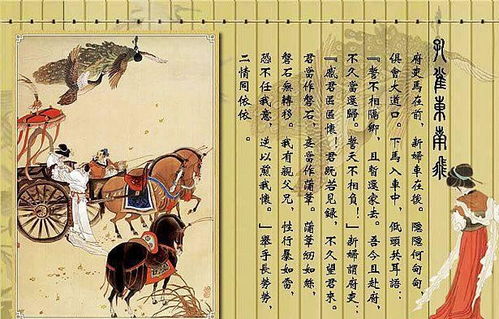 孔雀東南飛
府吏馬在前,新婦車在後。隱隱何甸甸
俱會大道口。下馬入車中,低頭共耳語:
『誓不相隔卿,且暫還家去。吾今且赴府,
不久當還歸。誓天不相負!』新婦謂府吏:
『感君區區懷!君既若見錄,不久望君來。
君當作磐石,妾當作蒲葦。蒲葦紉如絲,
磐石無轉移。我有親父兄,性行暴如雷,
恐不任我意,逆以煎我懷。』舉手長勞勞,
二情同依依。